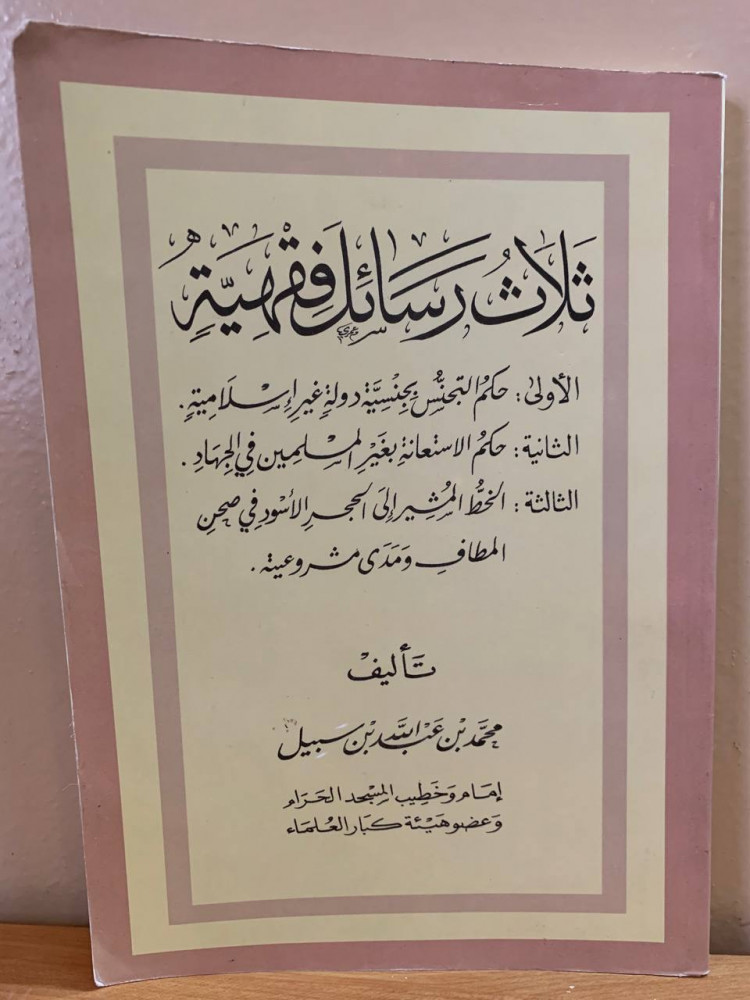 ثَلَاثُ رَسَائِل فِقْهِيَّةٍ
الأولى : حكمُ التجنُّس بجِنْسِيَّة دولةٍ غيرِ إِسْلَاميةٍ .
الثانية : حكمُ الاستعانةِ بغَيْرِ المسْلِمِين في الجِهَادِ .
الثالثة : الخطُّ المشِير إلَى الحجرِ الأسْود في صحنِ
المطافِ وَمَدَى مشروعيته .
تَأليفْ
محمَّد بْن عَبْد اللَّه بْن سبيل
إمَام وَخَطِيب المسْجد الحَرَام
وَعضو هَيْئة كبَار العُلمَاء